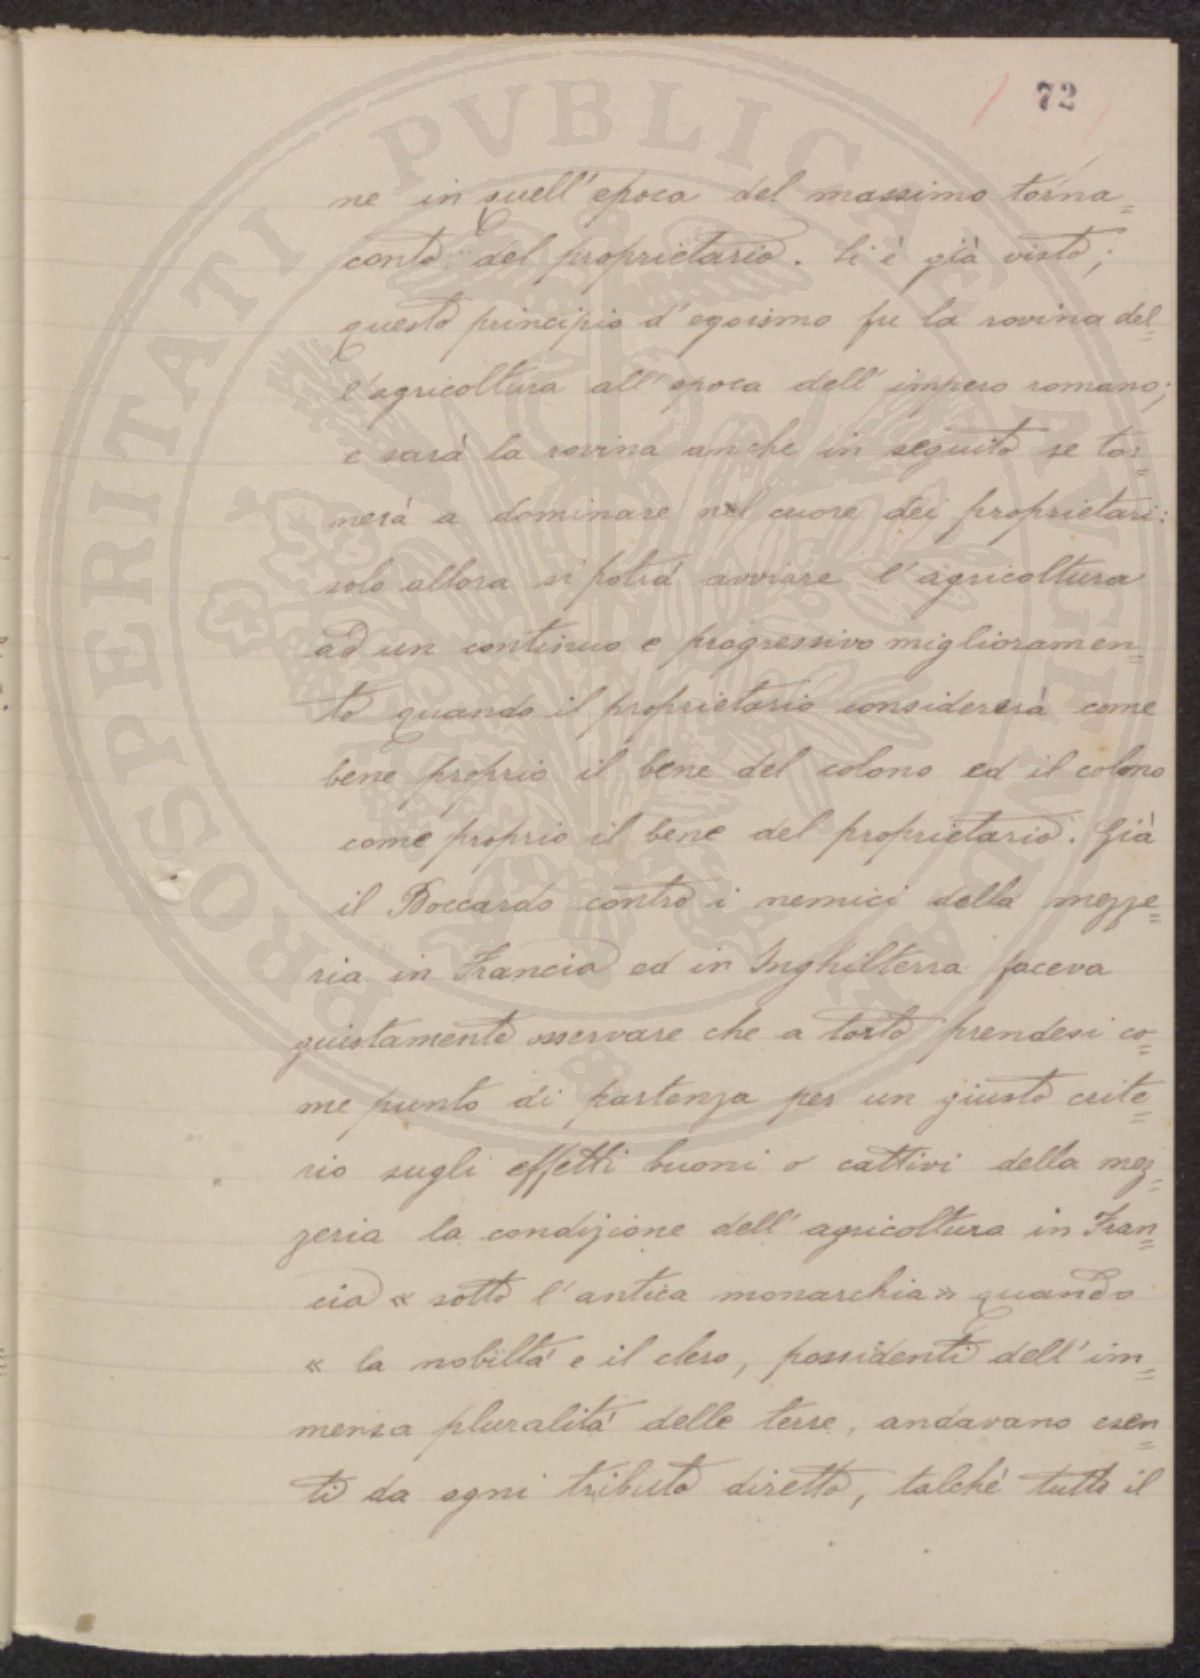 72
ne in quell'epoca del massimo torna=
conto del proprietario. Si è già visto;
questo principio d'egoismo fu la rovina del=
l'agricoltura all'epoca dell'impero romano;
e sarà la rovina anche in seguito se tor=
nerà a dominare nel cuore dei proprietari:
solo allora si potrà avviare l'agricoltura
ad un continuo e progressivo miglioramen=
to quando il proprietario considererà come
bene proprio il bene del colono ed il colono
come proprio il bene del proprietario. Già
il Boccardo contro i nemici della mezze=
ria in Francia ed in Inghilterra faceva
giustamente osservare che a torto prendesi co=
me punto di partenza per un giusto crite=
rio sugli effetti buoni o cattivi della mez=
zeria la condizione dell'agricoltura in Fran=
cia « sotto l'antica monarchia » quando
« la nobiltà e il clero, possidenti dell'im=
mensa pluralità delle terre, andavano esen=
ti da ogni tributo diretto, talchè tutto il
PROSPERITATI PVBLICAE AVGENDAE